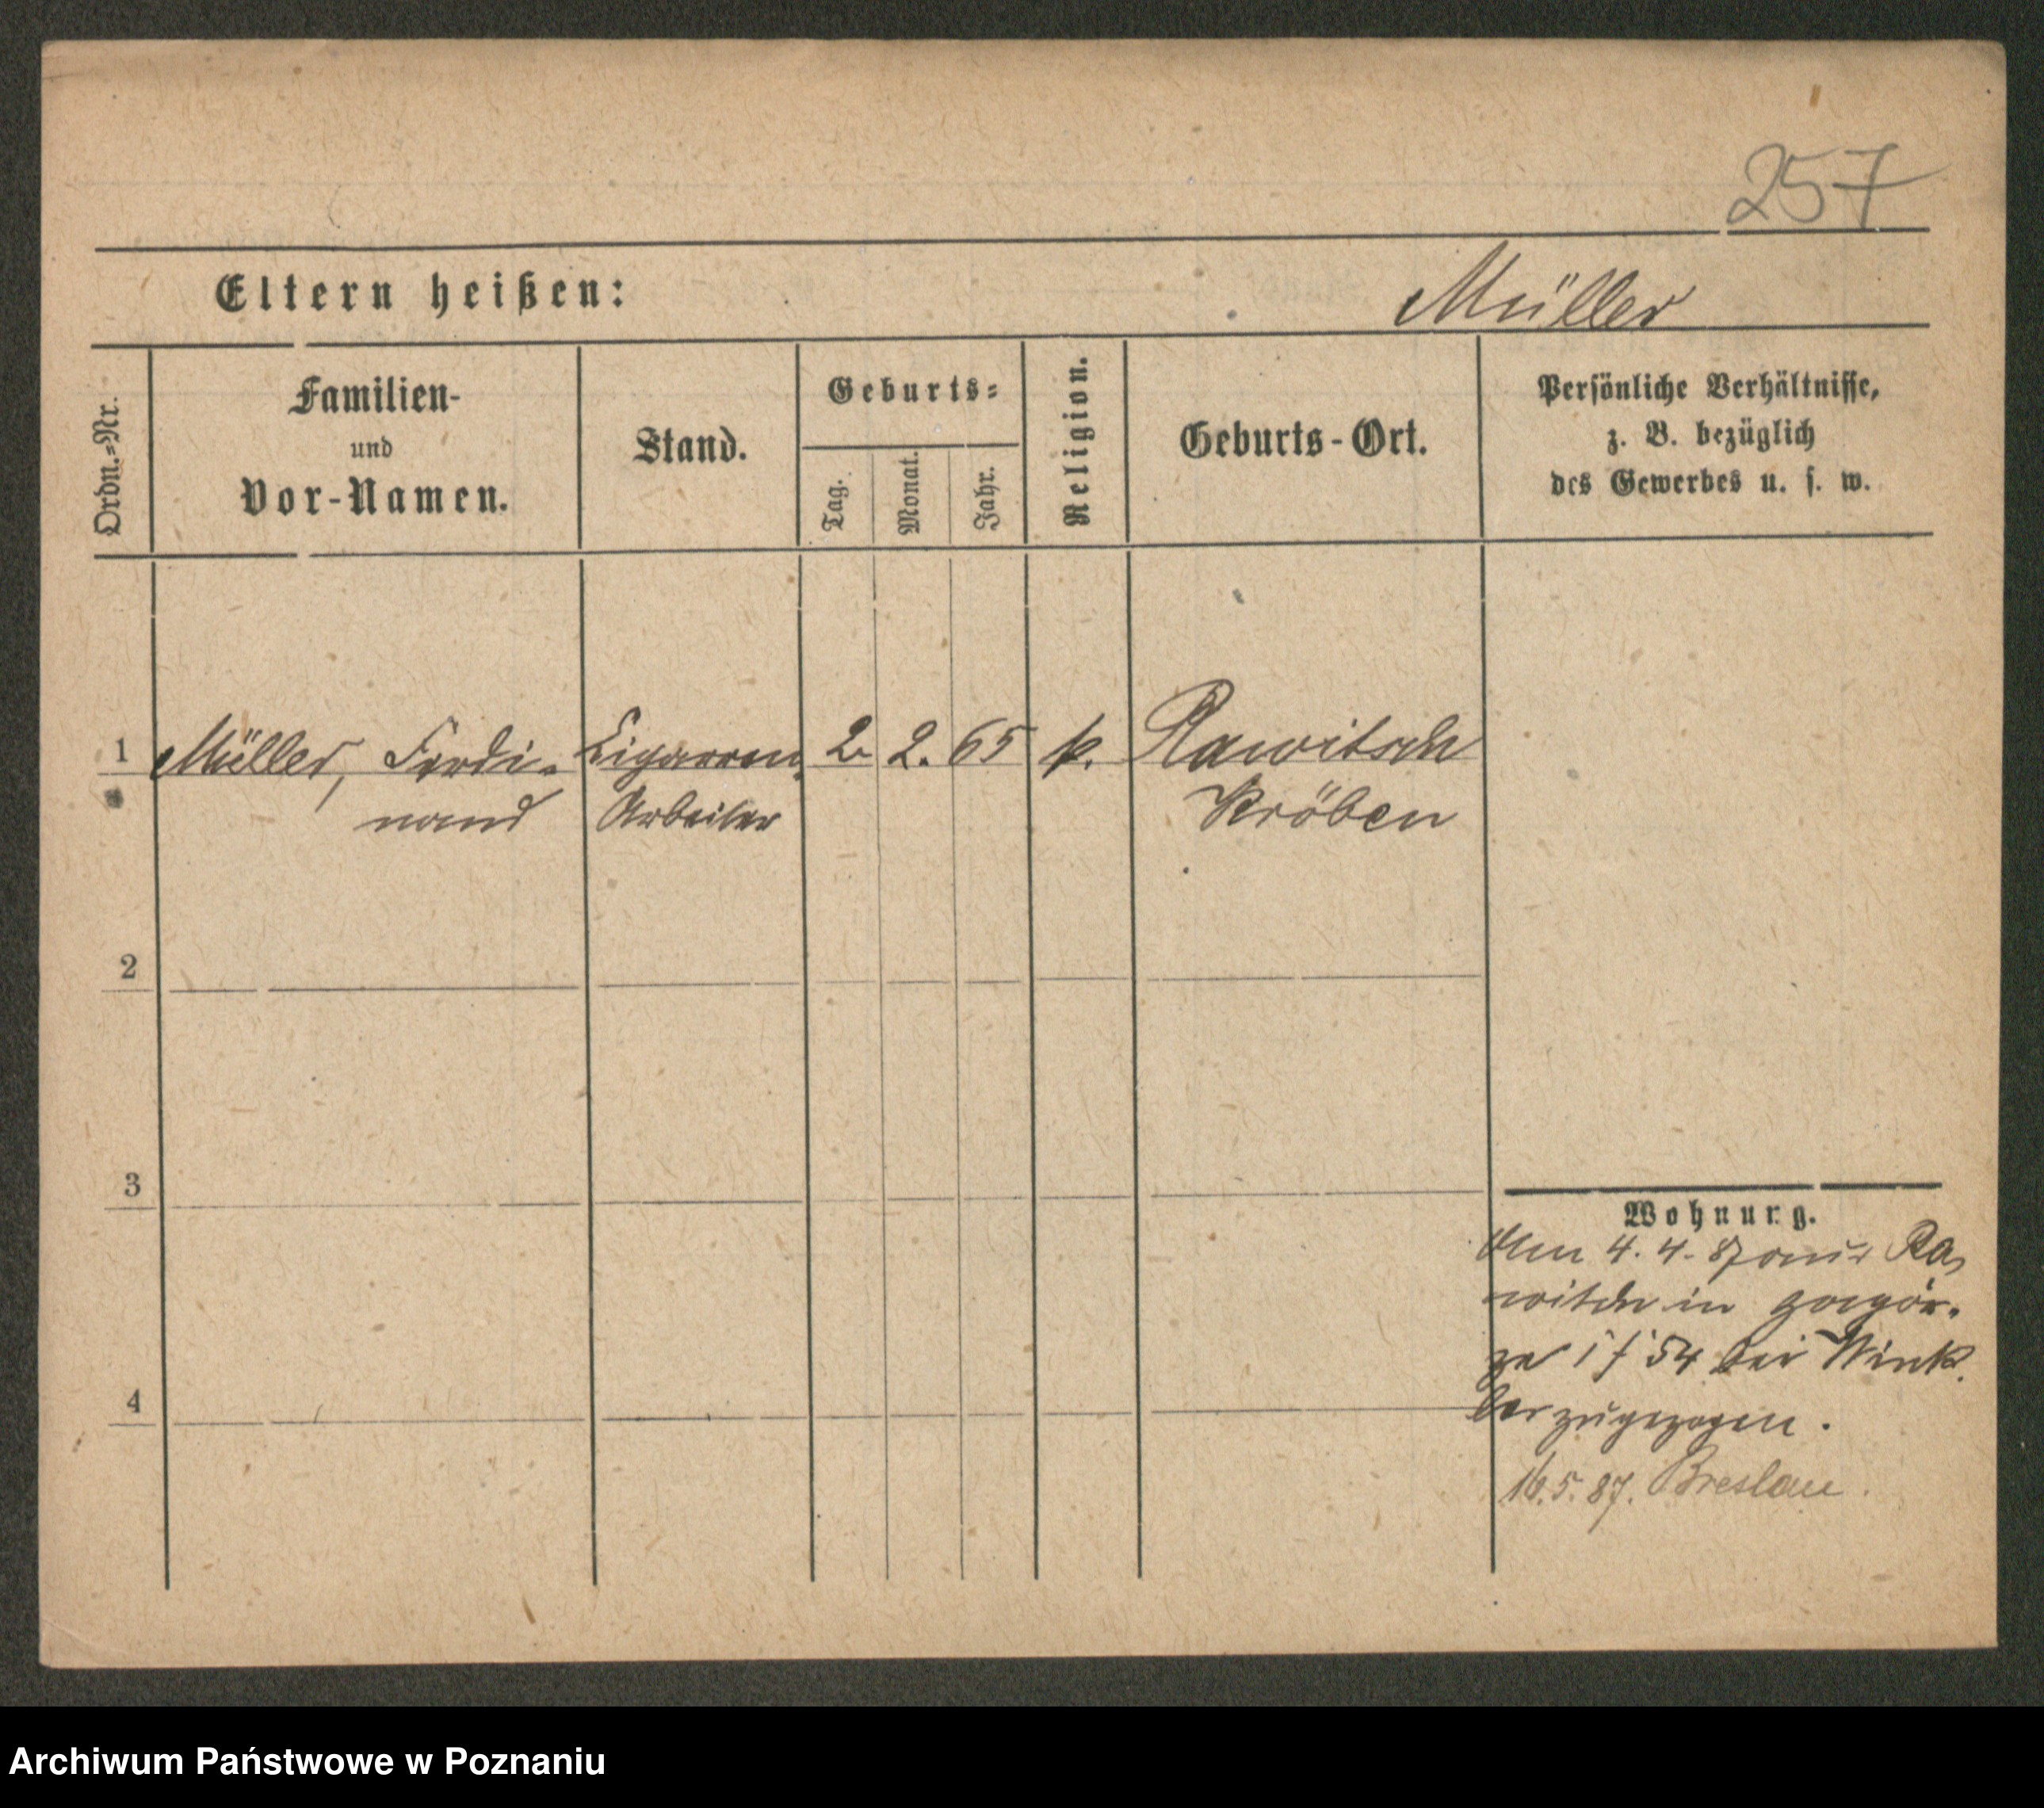 257
Eltern heißen:
Müller
Ordn.=Nr.
Familien-
und
Vor-Namen.
Stand.
Geburts=
Tag.
Monat.
Jahr.
Religion.
Geburts-Ort.
Persönliche Verhältnisse,
z. B. bezüglich
des Gewerbes u. s. w.
1 Müller, Ferdi- Cigarren- 2. 2. 65 k. Rawitsch
nand Arbeiter Kröben
2
3
4
Wohnung.
Am 4. 4. 87 aus Ra-
witsch in
54 bei Wink-
ler zugezogen.
16.5.87. Breslau.
Archiwum Państwowe w Poznaniu